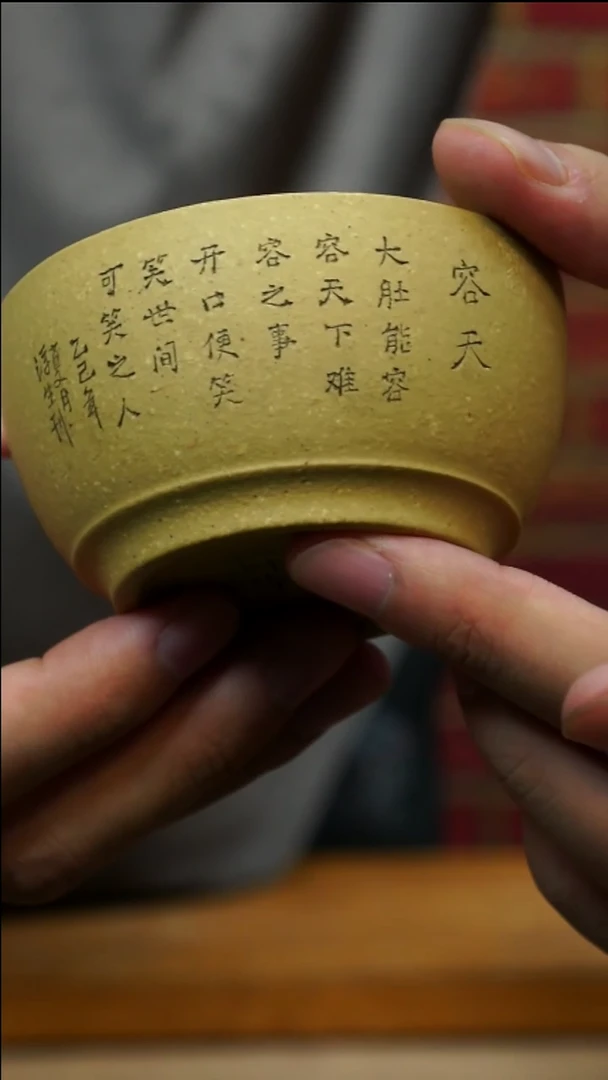 容天
大肚能容
容天下难
容之事
开口便笑
笑世间
可笑之人
乙巳年
夏月
浮生刊